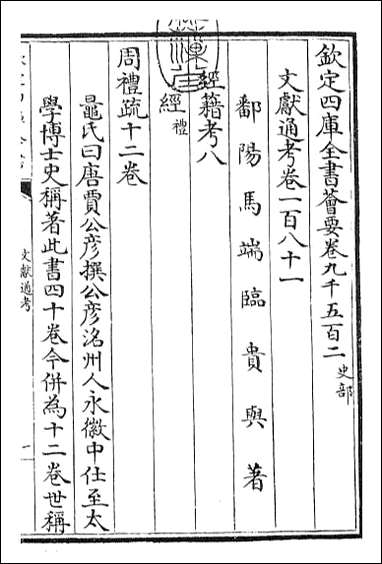 欽定四庫全書薈要卷九千五百二 史部
文獻通考卷一百八十一
鄱陽馬端臨貴與著
經籍考八
經 禮
周禮疏十二卷
鼂氏曰唐賈公彦撰公彦洺州人永徽中仕至太
學博士史稱著此書四十卷今併為十二卷世稱
文獻通考
一